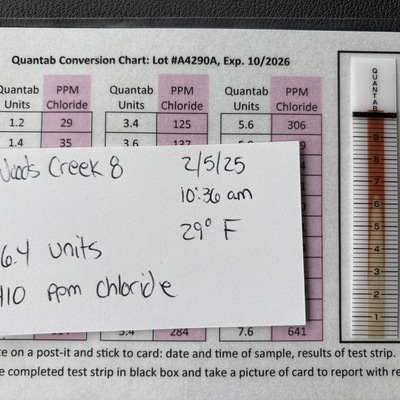 Quantab Conversion Chart: Lot #A4290A, Exp. 10/2026
Quantab Units PPM Chloride Quantab Units PPM Chloride Quantab Units PPM Chloride
1.2 29 3.4 125 5.6 306
1.4 35 3.6 137
Woods Creek 8 2/5/25
10:36 am
29° F
6.4 units
410 ppm chloride
284 7.6 641
on a post-it and stick to card: date and time of sample, results of test strip.
completed test strip in black box and take a picture of card to report with
QUANTAB
9
8
7
6
5
4
3
2
1